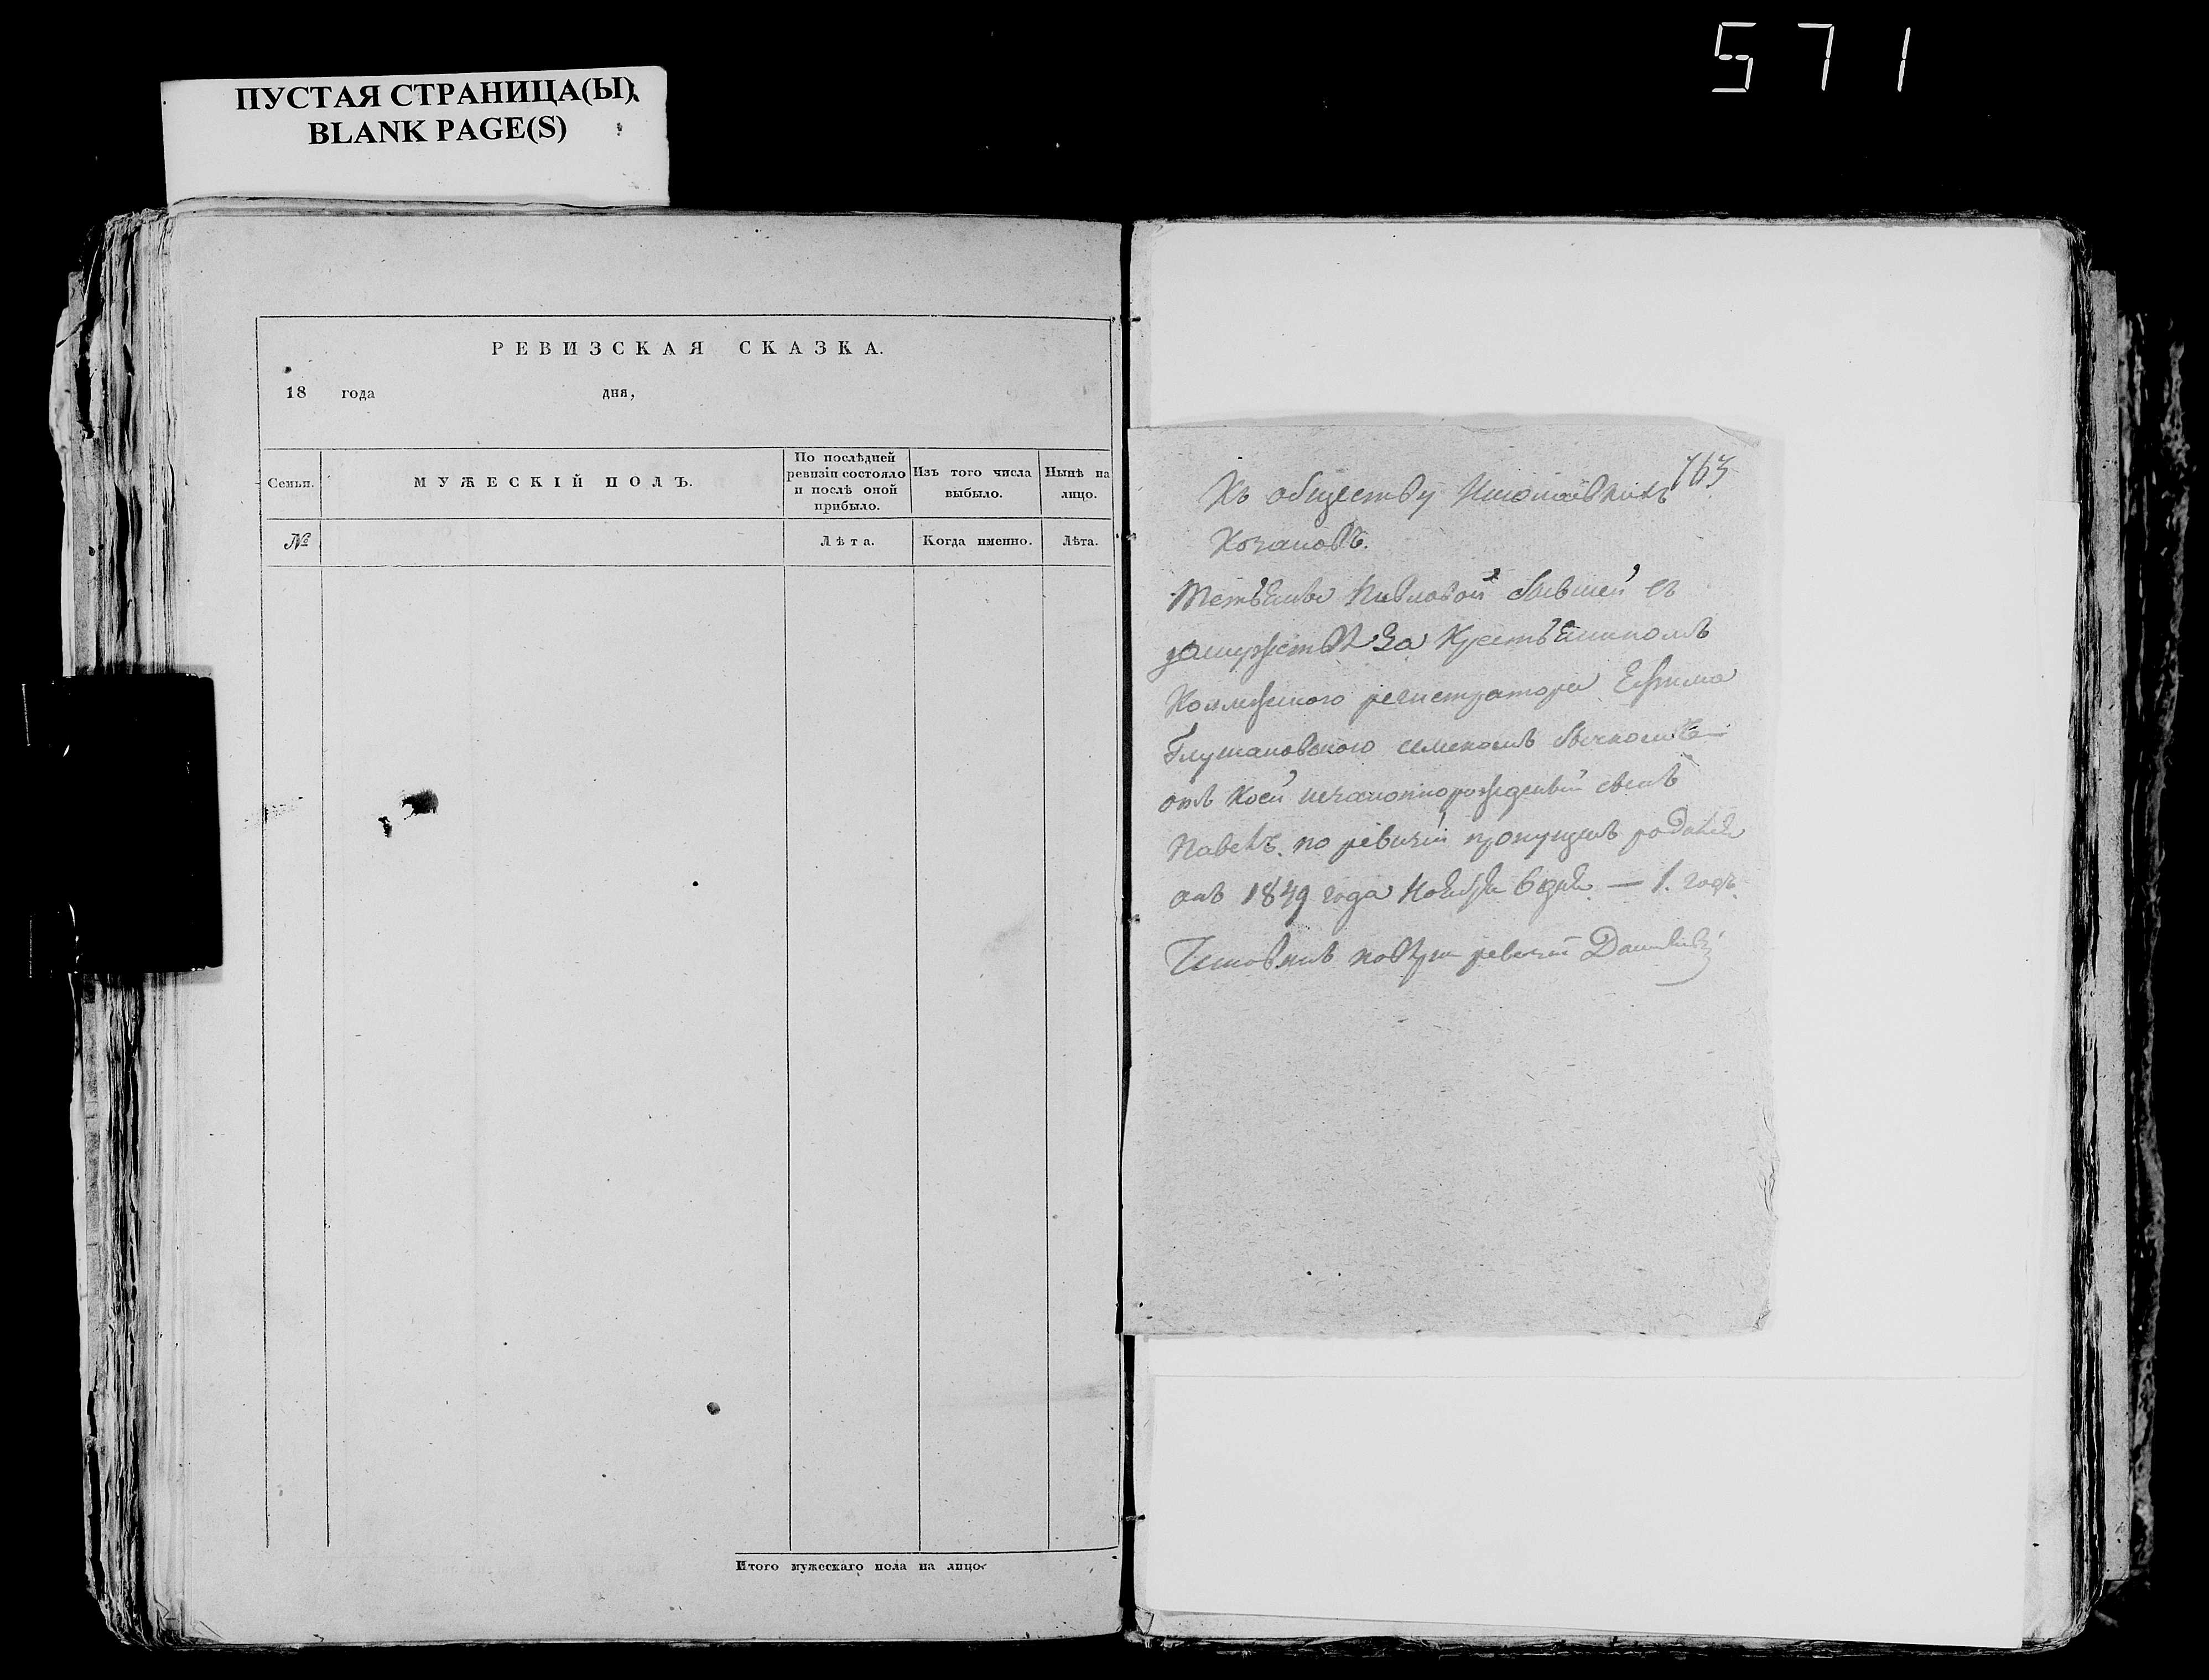 571
ПУСТАЯ СТРАНИЦА(Ы)
BLANK PAGE(S)
РЕВИЗСКАЯ СКАЗКА.
18 года дня,
Семьи.
МУЖЕСКІЙ ПОЛЪ.
По послѣдней
ревизіи состояло
и послѣ оной
прибыло.
Изъ того числа
выбыло.
Нынѣ на
лицо.
№
Лѣта.
Когда именно.
Лѣта.
Итого мужескаго пола на лицо
763
Къ обществу
Козаковъ.
Павловой бывшей въ
замужствѣ за Крестьяниномъ
Колежского регистратора Ефима
отъ коей незаконнорожденый сынъ
Павелъ по ревизіи пропущенъ родился
1849 года Ноября 6 дня — 1. годъ
ревизіи